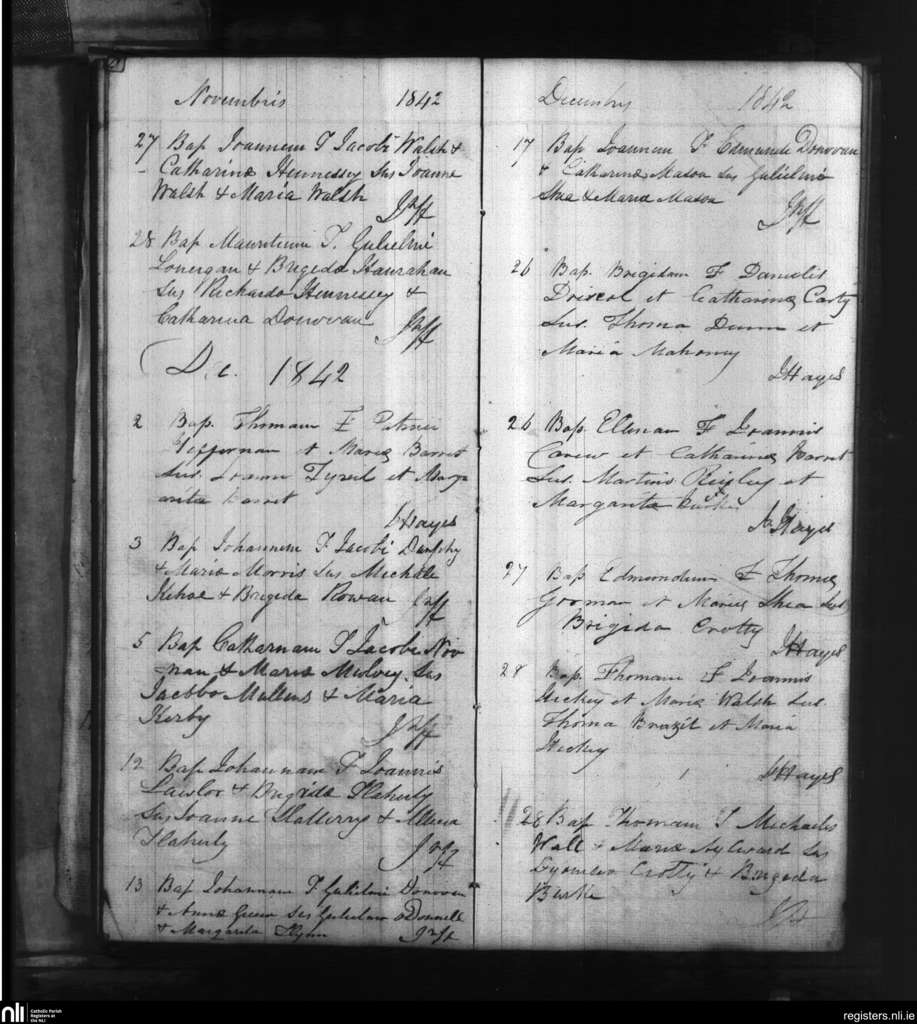 Novembris 1842
27 Bap Joannem F Jacobi Walsh &
Catharina Hennessy Sus Joanne
Walsh & Maria Walsh
28 Bap Mauritium F. Gulielmi
Lonergan & Brigeda Hanrahan
Sus Richardo Hennessey &
Catharina Donovan
Dec. 1842
2 Bap. Thomam F Patricii
Heffernan & Maria Barret
Sus. Joanne Tyrel et Marga
arita Barret
JHayes
3 Bap Johannem F Jacobi Dunphy
& Maria Morris Sus Michale
Kehoe & Brigeda Rowan
5 Bap Catharnam F Jacobi Noo
nan & Maria Mulvey Sus
Jacobbo Mullens & Maria
Kerby
12 Bap Johannam F Joannis
Lawlor & Brigida Flaherty
Sus Joanne Slatterry & Ellena
Flaherty
13 Bap Johannam F Gulielmi Donovan
& Anna Green Sus Gulielmo oDonnell
& Margarita Flynn
December 1842
17 Bap Joannem F Edmundi Donovan
& Catharina Mason Sus Gulielmo
Shea & Maria Mason
26 Bap. Brigidam F Danielis
Driscol et Catharina Carty
Sus. Thoma Dunn et
Maria Mahoney
JHayes
26 Bap. Ellenam F Joannis
Carew et Catharina Barret
Sus. Martino Quigley et
Margarita Burke
J Hayes
27 Bap. Edmondum F Thomæ
Gorman et Maria Shea Sus
Brigida Crotty
JHayes
28 Bap. Thomam F Joannis
Hickey et Maria Walsh Sus.
Thoma Brazil et Maria
Hickey
JHayes
28 Bap Thomam F Michaelis
Wall & Maria Aylward Sus
Crotty & Brigeda
Burke
nli
Catholic Parish
Registers at
the NLI
registers.nli.ie